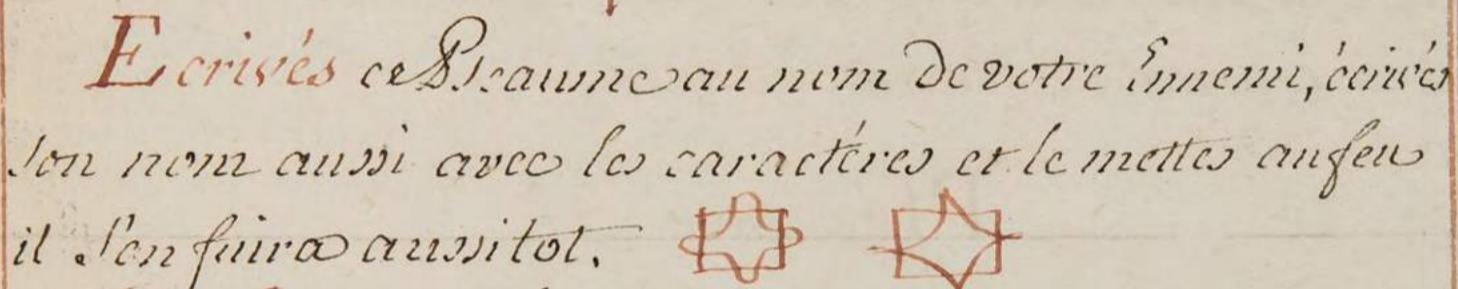 Ecrivés ce Pseaume au nom de votre Ennemi, écrivés
son nom aussi avec les caractéres et le mettes au feu
il s'en fuira aussitot.